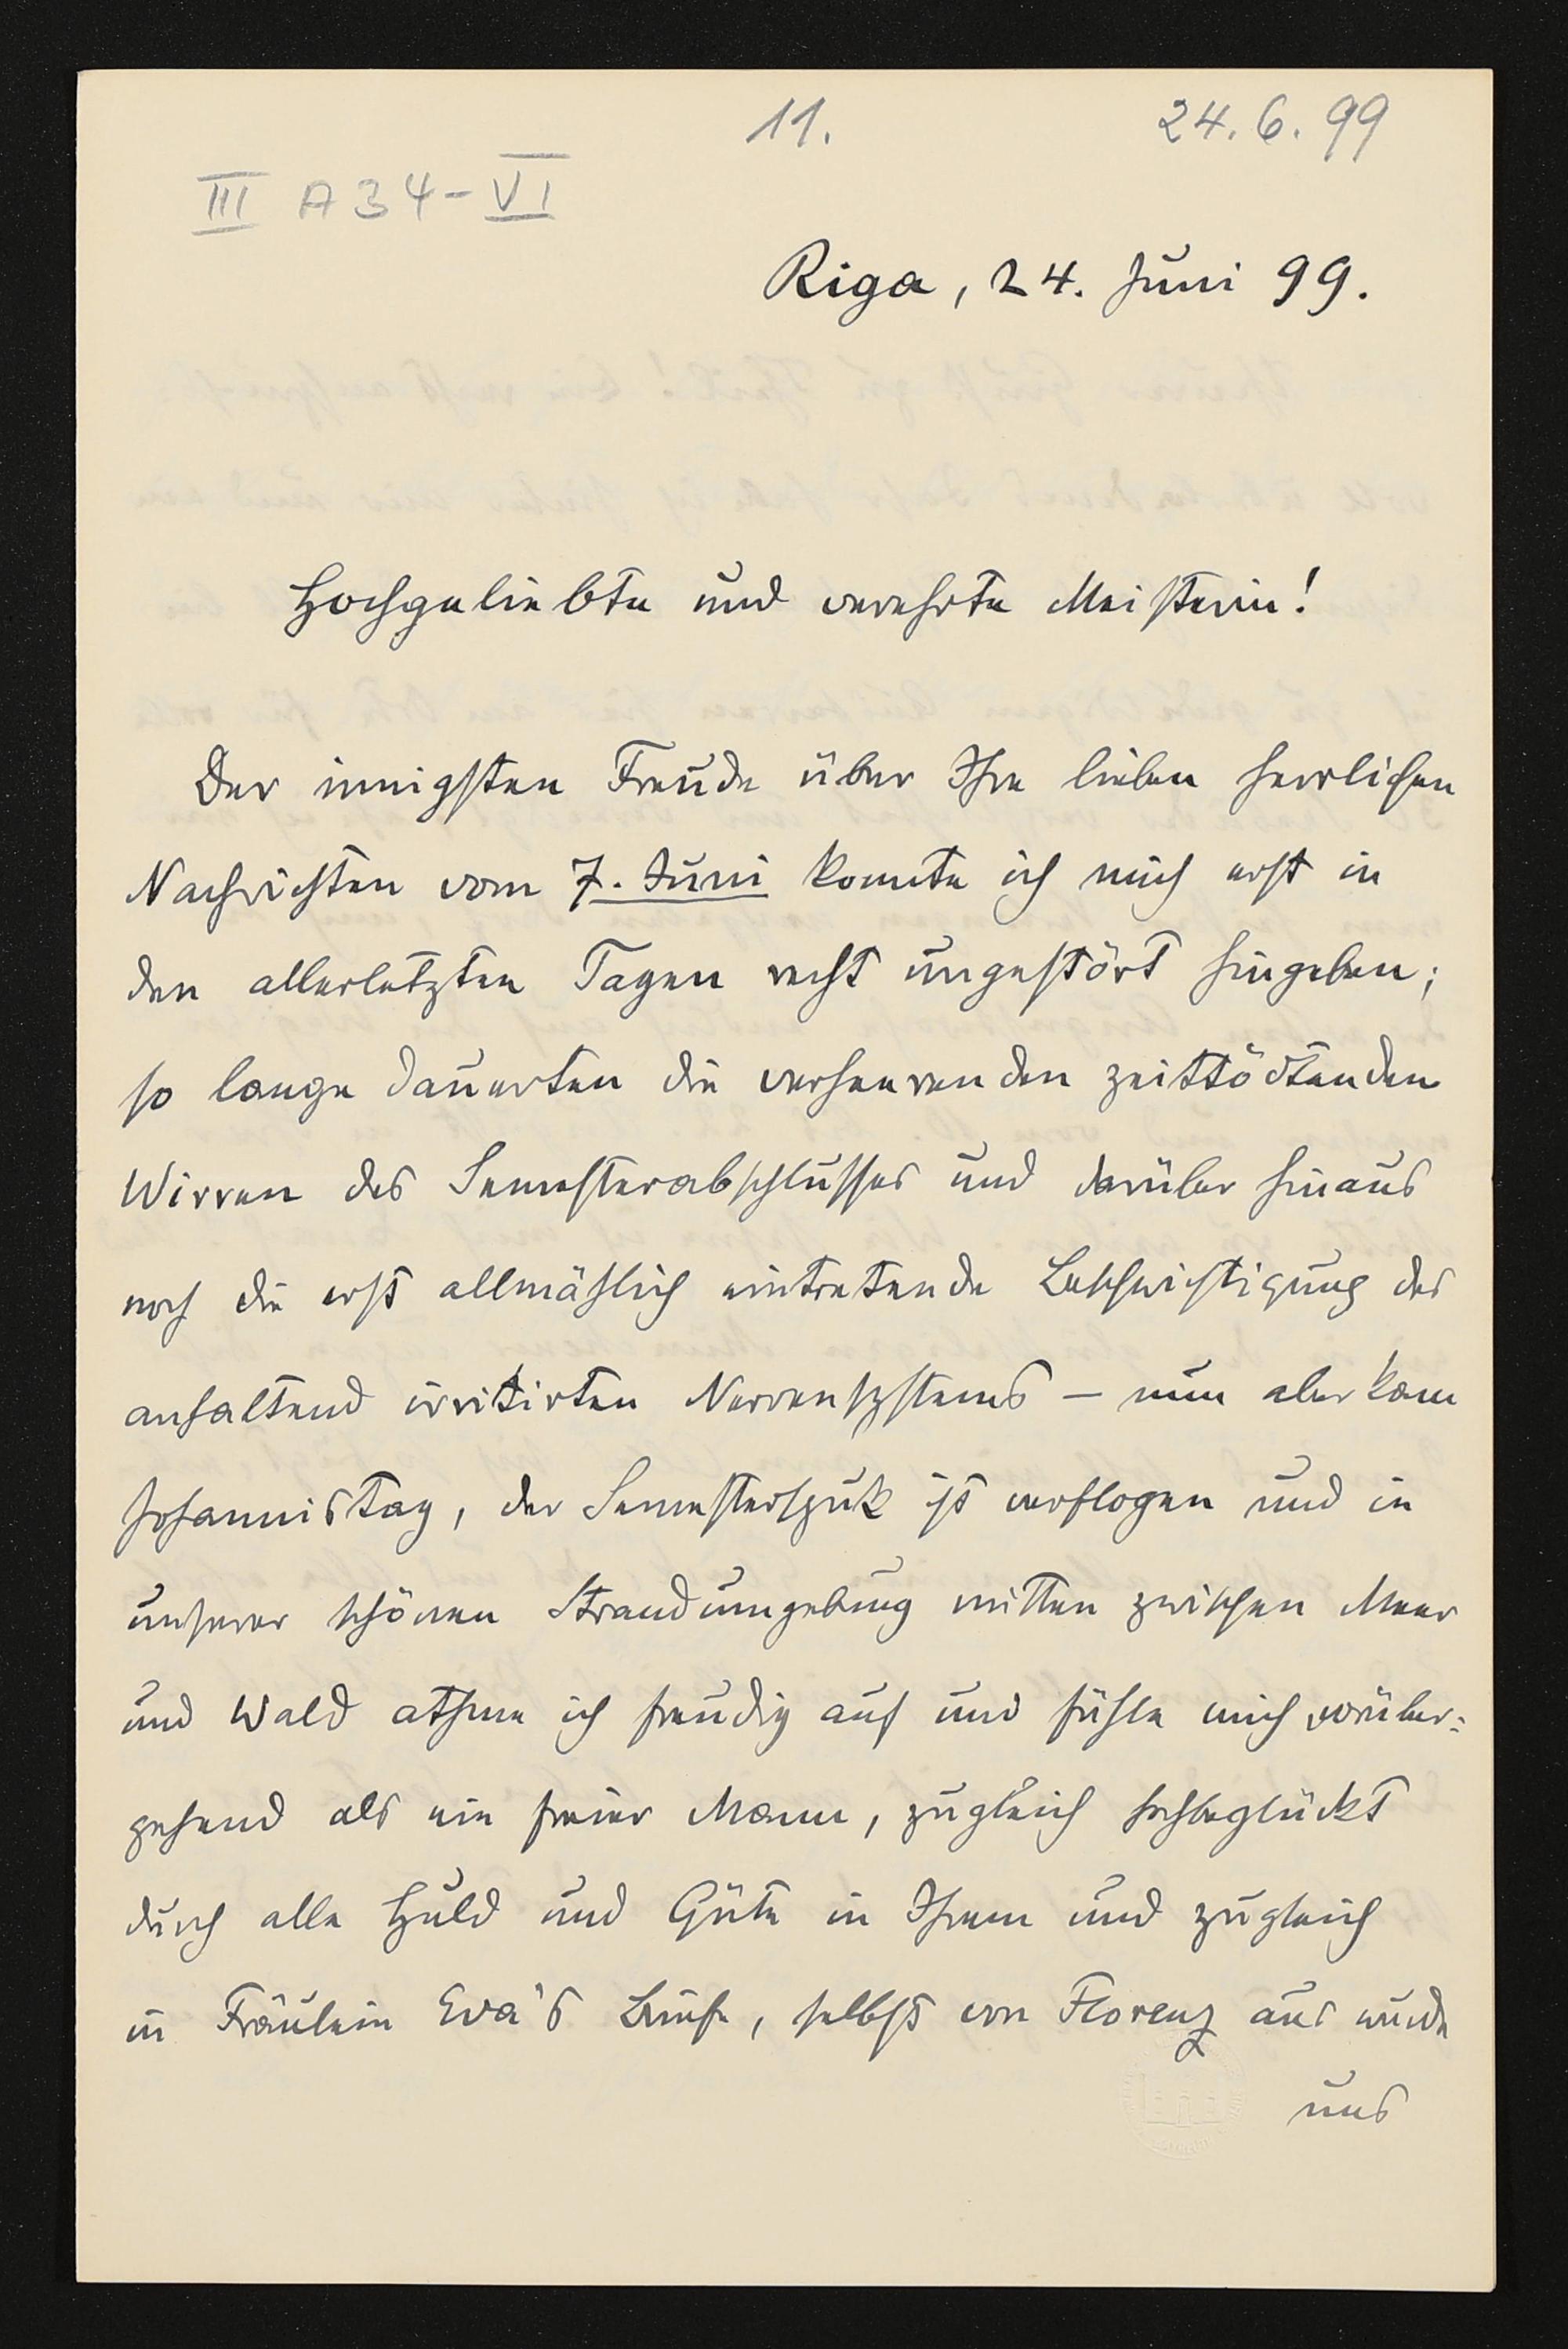 11.
24.6.99
III A34-VI
Riga, 24. Juni 99.
Hochgeliebte und verehrte Meisterin!
Der innigsten Freude über Ihre lieben herrlichen
Nachrichten vom 7. Juni konnte ich mich erst in
den allerletzten Tagen recht ungestört hingeben;
so lange dauerten die verheerenden zeittödtenden
Wirren des Semesterabschlusses und darüber hinaus
noch die erst allmählich eintretende Beschwichtigung des
anhaltend irritirten Nervensystems – nun aber kam
Johannistag, der Semesterspuk ist verflogen und in
unserer schönen Strandumgebung mitten zwischen Meer
und Wald athme ich freudig auf und fühle mich vorüber-
gehend als ein freier Mann, zugleich hochbeglückt
durch alle Huld und Güte in Ihrem und zugleich
in Fräulein Eva's Briefe, selbst von Florenz aus wurde
uns